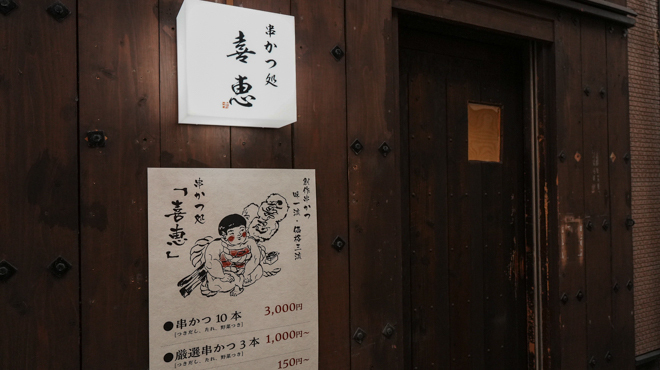 串かつ処
喜恵
創作串かつ
味一流・価格三流
串かつ処
「喜恵」
●串かつ 10 本 3,000円
(つきだし、たれ、野菜つき)
●厳選串かつ 3 本 1,000円~
(つきだし、たれ、野菜つき)
150円~